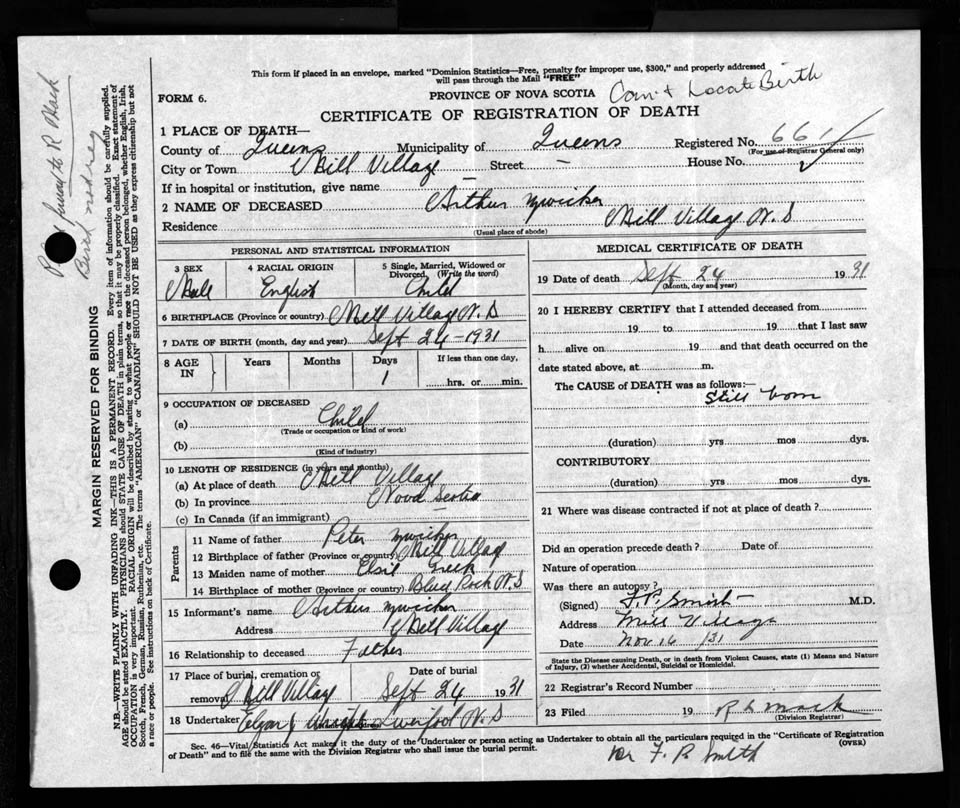 This form if placed in an envelope, marked "Dominion Statistics—Free, penalty for improper use, $300," and properly addressed
will pass through the Mail "FREE"
FORM 6.
PROVINCE OF NOVA SCOTIA
Locate Birth
CERTIFICATE OF REGISTRATION OF DEATH
1 PLACE OF DEATH—
County of Queens Municipality of Queens Registered No. 661
(For use of Registrar General only)
City or Town Mill Village Street — House No.
If in hospital or institution, give name —
2 NAME OF DECEASED Arthur Zwicker
Residence Mill Village N.S
(Usual place of abode)
PERSONAL AND STATISTICAL INFORMATION
3 SEX Male
4 RACIAL ORIGIN English
5 Single, Married, Widowed or Divorced. (Write the word) Child
6 BIRTHPLACE (Province or country) Mill Village N.S
7 DATE OF BIRTH (month, day and year) Sept 24 - 1931
8 AGE IN Years Months Days 1 If less than one day, hrs. or min.
9 OCCUPATION OF DECEASED
(a) Child
(Trade or occupation or kind of work)
(b)
(Kind of industry)
10 LENGTH OF RESIDENCE (in years and months)
(a) At place of death Mill Village
(b) In province Nova Scotia
(c) In Canada (if an immigrant)
Parents
11 Name of father Peter Zwicker
12 Birthplace of father (Province or country) Mill Village
13 Maiden name of mother Elsie
14 Birthplace of mother (Province or country) Blue Rock N.S
15 Informant's name Arthur Zwicker
Address Mill Village
16 Relationship to deceased Father
17 Place of burial, cremation or removal Mill Village Date of burial Sept 24 1931
18 Undertaker Liverpool N.S
MEDICAL CERTIFICATE OF DEATH
19 Date of death Sept 24 1931
(Month, day and year)
20 I HEREBY CERTIFY that I attended deceased from
19 to 19 that I last saw
h alive on 19 and that death occurred on the
date stated above, at m.
The CAUSE of DEATH was as follows:—
Still born
(duration) yrs mos dys.
CONTRIBUTORY
(duration) yrs mos dys.
21 Where was disease contracted if not at place of death?
Did an operation precede death? Date of
Nature of operation
Was there an autopsy?
(Signed) F. P. Smith M.D.
Address Mill Village
Date Nov 16 /31
State the Disease causing Death, or in death from Violent Causes, state (1) Means and Nature
of Injury, (2) whether Accidental, Suicidal or Homicidal.
22 Registrar's Record Number
23 Filed 19 R L Mack
(Division Registrar)
Sec. 46—Vital Statistics Act makes it the duty of the Undertaker or person acting as Undertaker to obtain all the particulars required in the "Certificate of Registration
of Death" and to file the same with the Division Registrar who shall issue the burial permit.
(OVER)
Smith
MARGIN RESERVED FOR BINDING
N.B.—WRITE PLAINLY WITH UNFADING INK—THIS IS A PERMANENT RECORD. Every item of information should be carefully supplied.
AGE should be stated EXACTLY. PHYSICIANS should STATE CAUSE OF DEATH in plain terms, so that it may be properly classified. Exact statement of
OCCUPATION is very important. RACIAL ORIGIN will be described by stating to what people or race the deceased person belonged, whether English, Irish,
Scotch, French, German, Russian, Ruthenian, etc. The terms "AMERICAN" or "CANADIAN" SHOULD NOT BE USED as they express citizenship but not
a race or people. See instructions on back of Certificate.